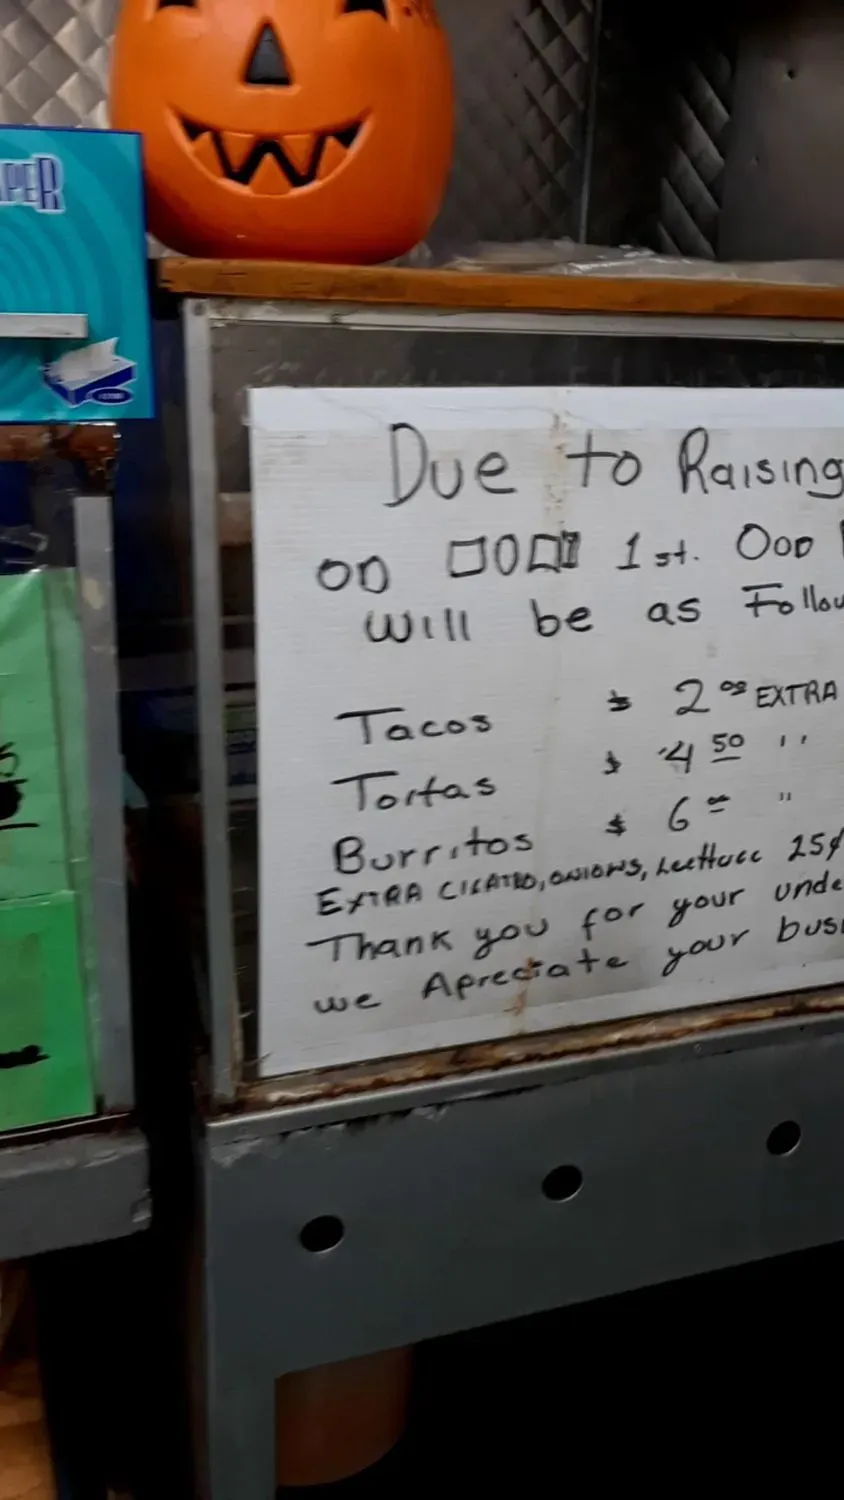 PER
Due to Raising
on 1st. Ood
Will be as Follow
Tacos $ 2 00 EXTRA
Tortas $ 4 50 ''
Burritos $ 6 00 "
EXTRA CILATRO, ONIONS, Lettucc 25¢
Thank you for your unde
we Apreciate your busi